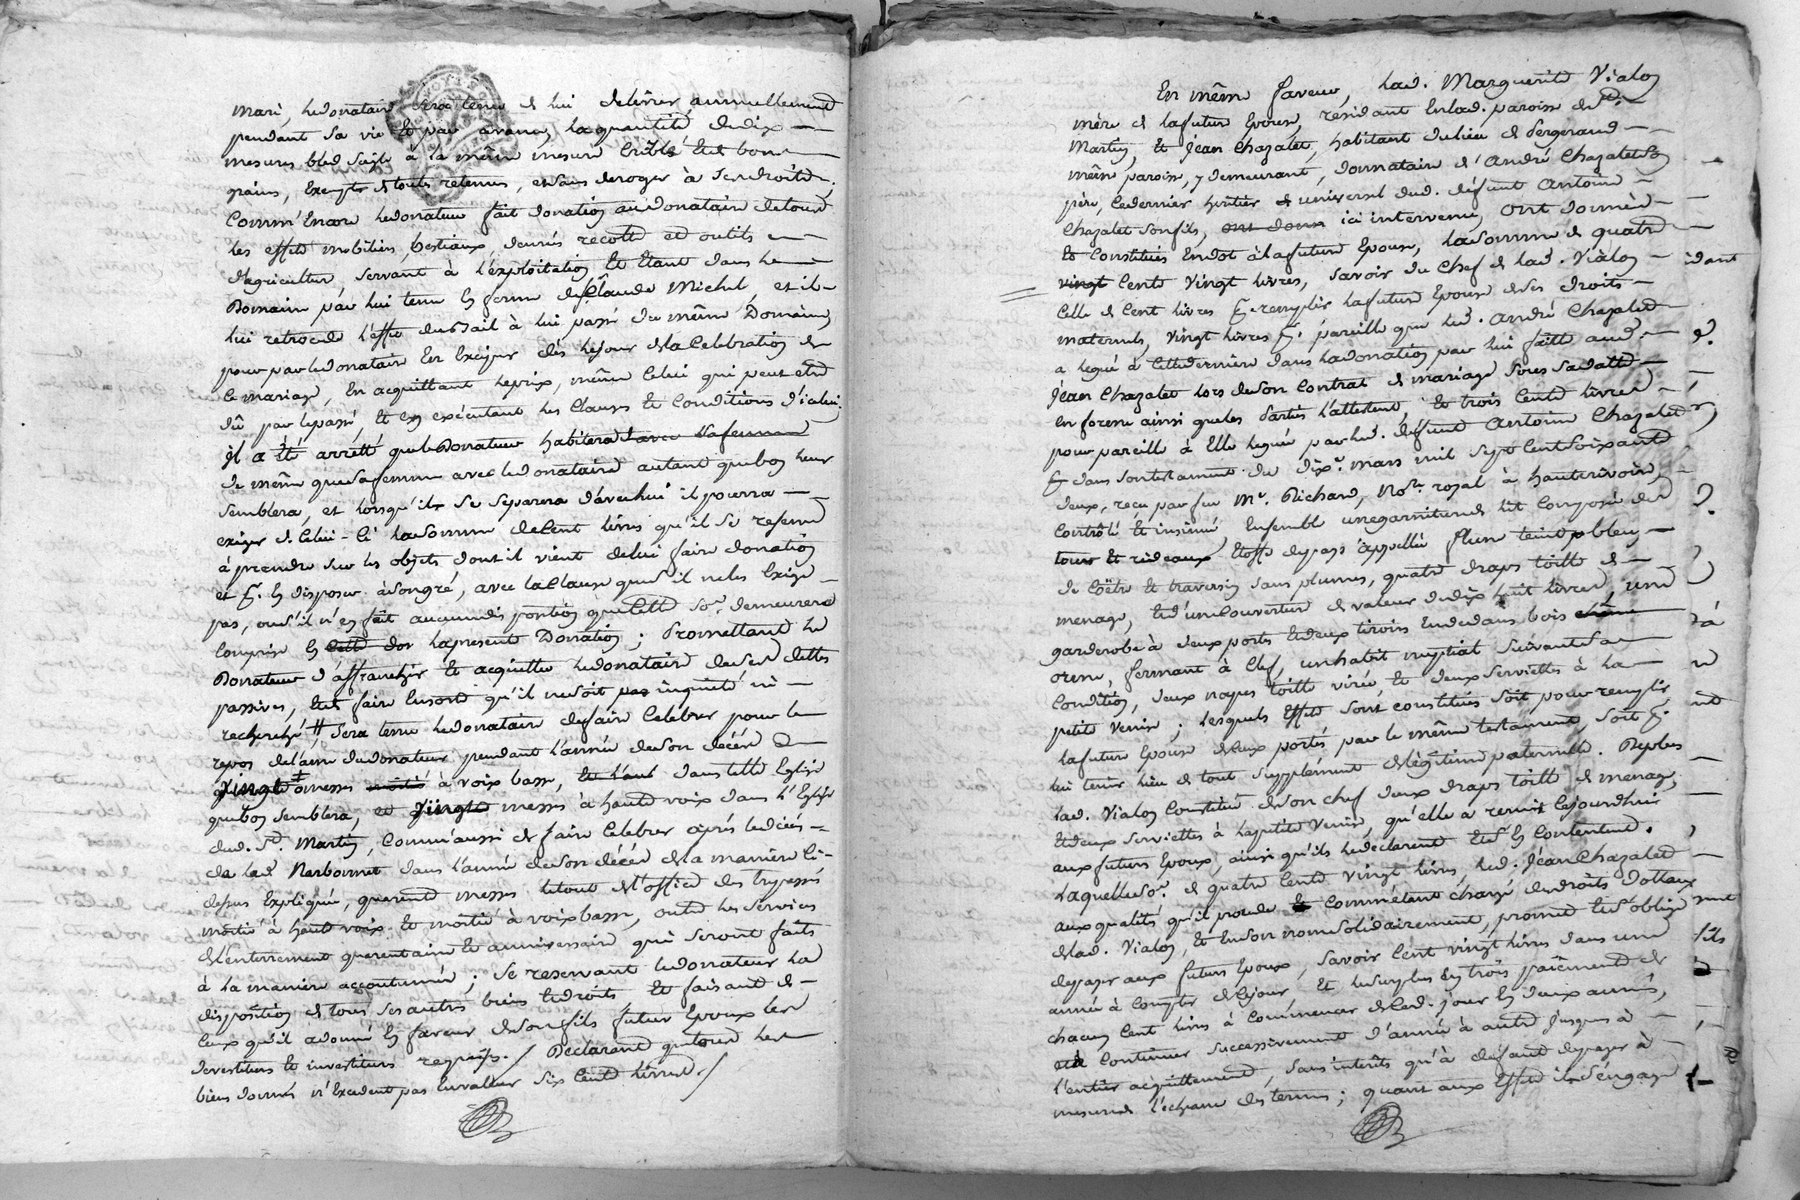 mari, le donataire sera tenu de lui delivrer annuellement
pendant sa vie et par avance, la quantité de dix
mesures bled seigle à la même mesure criblé et bons
grains, exempts de toutes retenues, et sans deroger à ses droits,
Comm'encore le donateur fait donation au donataire de tous
les effets mobiliers, bestiaux, denrés recolte et outils
d'agriculture, servant à l'exploitation et étant dans le
Domaine par lui tenu en ferme de Claude Michel, et il
lui retrocede l'effet du bail à lui passé du même Domaine,
pour par le donataire en exiger dès le jour de la Celebration de
ce mariage, en acquittant le prix, même celui qui peut etre
dû par le passé, et en exécutant les Clauses et Conditions d'icelui.
Il a été arretté que le Donateur habitera avec sa femme
de même que sa femme avec le donataire autant que bon leur
semblera, et lorsqu'ils se separera d'avec lui il pourra
exiger de celui-ci la somme de cent livres qu'il se reserve
à prendre sur les objets dont il vient de lui faire donation
et p.r en disposer à son gré, avec la clause que s'il ne les exige
pas, ou s'il n'en fait aucune disposition que cette so.e demeurera
comprise en cette don la present Donation; Promettant le
Donateur d'affranchir et acquitter le donataire de ses dettes
passives, et faire en sorte qu'il ne soit pas inquieté ni
recherché // sera tenu le donataire de faire Celebrer pour le
repos de l'ame du donateur pendant l'année de son décés
Vingt messes moitié à voix basse, et l'aut dans telle Eglise
que bon semblera, et Vingt messes à haute voix dans l'Eglise
dud. St. Martin, Comm'aussi de faire Celebrer aprés le décés
de lad. Narbonnet dans l'année de son décés de la maniere ci-
dessus Expliquée, quarente messes le tout de l'office des trepassés
moitié à haute voix et moitié à voix basse, outre les services
de l'enterrement quarentaine et anniversaire qui seront faits
à la maniere accoutumée; se reservant le donateur la
disposition de tous ses autres biens et droits et faisant de
ceux qu'il a donné en faveur de son fils futur Epoux les
devestitures et investitures requises./ Declarant que tous les
biens donnés n'Excedent pas en valeur six cents livres./
En même faveur, lad. Marguerite Vialon
mère de la future Epouse, résidant en lad. paroisse de St.
Martin, et Jean Chazalet, habitant du lieu de Sergerand
même paroisse, y demeurant, donnataire d'André Chazalet son
père, ce dernier heritier universel dud. défunt Antoine
Chazalet son fils, ont donn ici intervenu, ont donné
et constitués en dot à la future Epouse, la somme de quatre
vingt cents Vingt livres, savoir du chef de lad. Vialon
Celle de Cent livres p.r remplir la future Epouse de ses droits
maternels, vingt livres p.r pareille que led. André Chazalet
a legué à cette derniere dans la donation par lui faite aud.
Jean Chazalet lors de son Contrat de mariage sous sa date
en forme ainsi que les parties l'attestent; et trois cents livres
pour pareille à Elle leguée par led. défunt Antoine Chazalet
dans son testament du dix mars mil sept cent soixante
deux, recu par feu M.e Richard, No.re royal à hauterivoire,
Contrôlé et insinué, Ensemble une garniture de lit composée de
tour et rideaux etoffe de pays appellée flun teint bleu
de Coëtre et traversin sans plumes, quatre draps toille de
menage, et d'une Couverture de valeur de dix huit livres, une
garderobe à deux portes et deux tiroirs en dedans bois chêne
orme, fermant à clef, un habit nuptial suivant sa
Condition, deux napes toille virée et deux serviettes à la
petite Venise; lesquels Effets sont constitués soit pour remplir
la future Epouse de ceux portés par le même testament, soit p.r
lui tenir lieu de tout supplément de légitime paternelle. De plus
lad. Vialon Constitue de son chef deux draps toille de menage,
et deux serviettes à la petite Venise, qu'elle a remis cejourd'hui
aux futurs Epoux, ainsi qu'ils le declarent et s'en contentent.
Laquelle so.e de quatre cents vingt livres, led. Jean Chazalet
aux qualités qu'il procede et comm'étant chargé des droits dotaux
de lad. Vialon, et en son nom solidairement, promet et s'oblige
de payer aux futurs Epoux, savoir Cent vingt livres dans une
année à compter de ce jour et le surplus en trois paiements de
chacun cent livres à commencer de ced. jour en deux années,
et à Continuer successivement d'année à autre jusques à
l'entier acquittement, sans interêts qu'à défaut de payer à
mesure de l'echeance des termes; quant aux Effets il s'engage